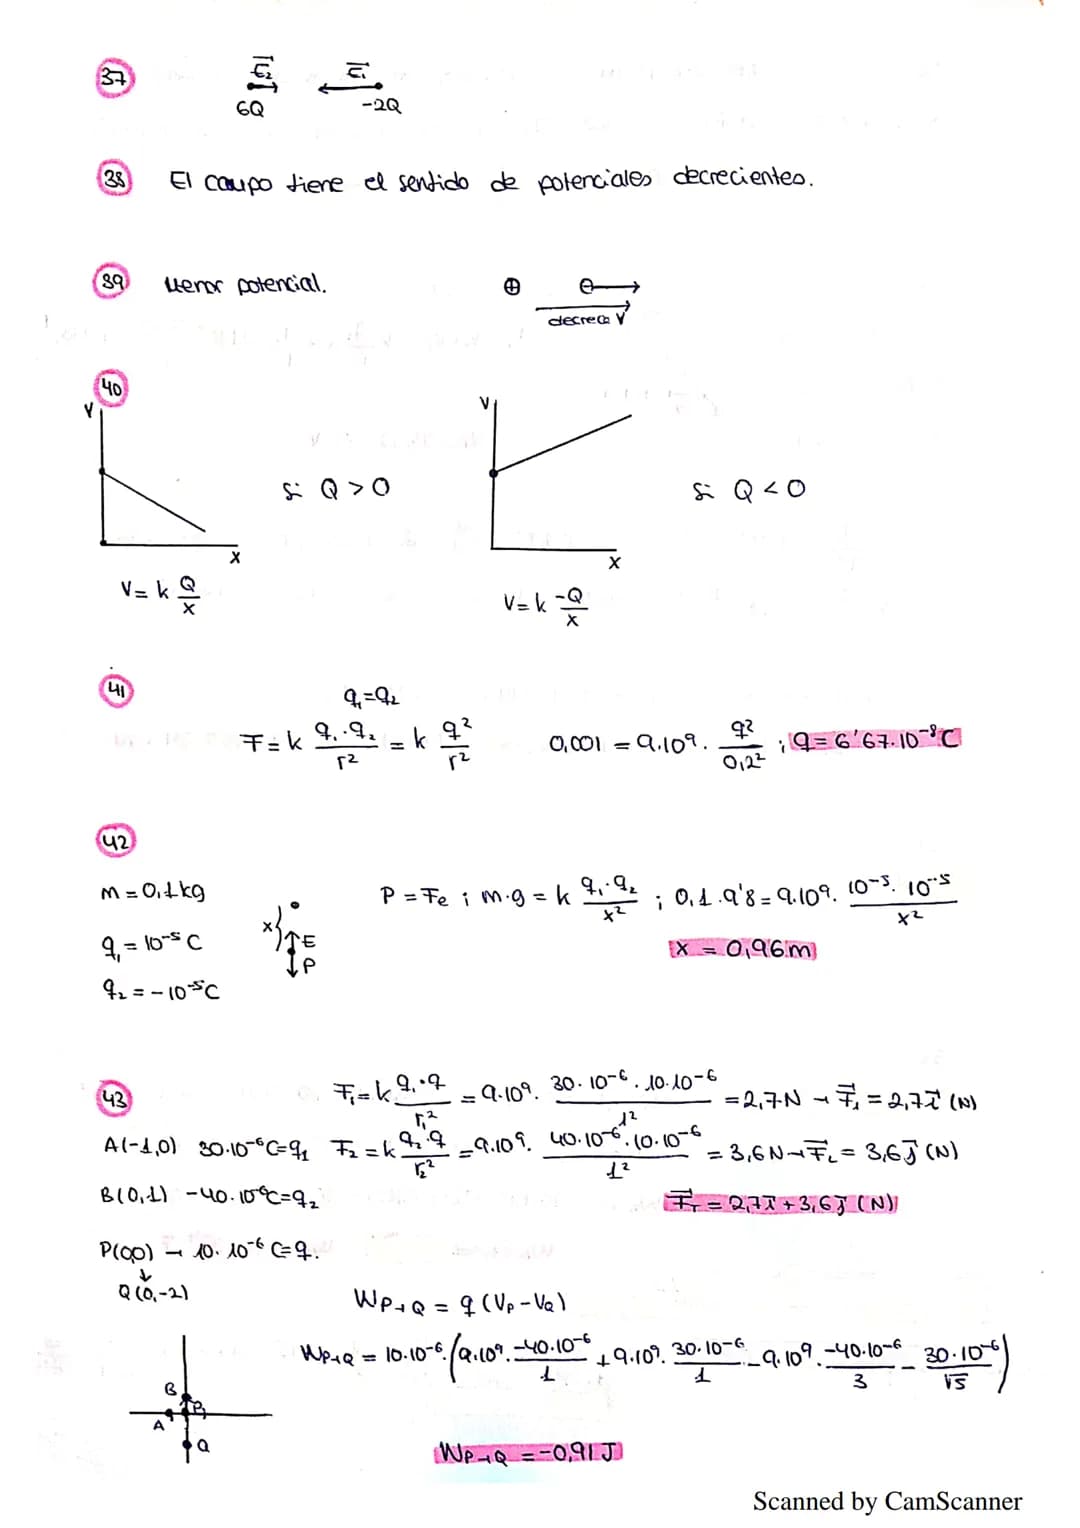 37 E⃗₂ E⃗₁
6Q -2Q
38 El campo tiene el sentido de potenciales decrecientes.
39 Menor potencial. ⊕ ⊖
decrece V
40
V V
Si Q > 0 Si Q < 0
X X
V = k Q/x V = k -Q/x
41 q₁=q₂
F = k q₁·q₂/r² = k q²/r² 0,001 = 9·10⁹· q²/0,2² ; q = 6'67·10⁻⁸ C
42
m = 0,1 kg P = Fe ; m·g = k q₁·q₂/x² ; 0,1·9'8 = 9·10⁹· 10⁻⁵·10⁻⁵/x²
x E P
q₁ = 10⁻⁵ C x = 0,96 m
q₂ = -10⁻⁵ C
43 F₁ = k q₁·q/r₁² = 9·10⁹· 30·10⁻⁶·10·10⁻⁶/1² = 2,7 N → F⃗₁ = 2,7 i⃗ (N)
A(-1,0) 30·10⁻⁶ C = q₁ F₂ = k q₂·q/r₂² = 9·10⁹· 40·10⁻⁶·10·10⁻⁶/1² = 3,6 N → F⃗₂ = 3,6 j⃗ (N)
B(0,1) -40·10⁻⁶ C = q₂ F⃗T = 2,7 i⃗ + 3,6 j⃗ (N)
P(0,0) → 10·10⁻⁶ C = q.
↓
Q(0,-2)
W P→Q = q (Vp - VQ)
W P→Q = 10·10⁻⁶·(9·10⁹· -40·10⁻⁶/1 + 9·10⁹· 30·10⁻⁶/1 - 9·10⁹· -40·10⁻⁶/3 - 30·10⁻⁶/√5)
B
A P
Q
W P→Q = -0,91 J
Scanned by CamScanner